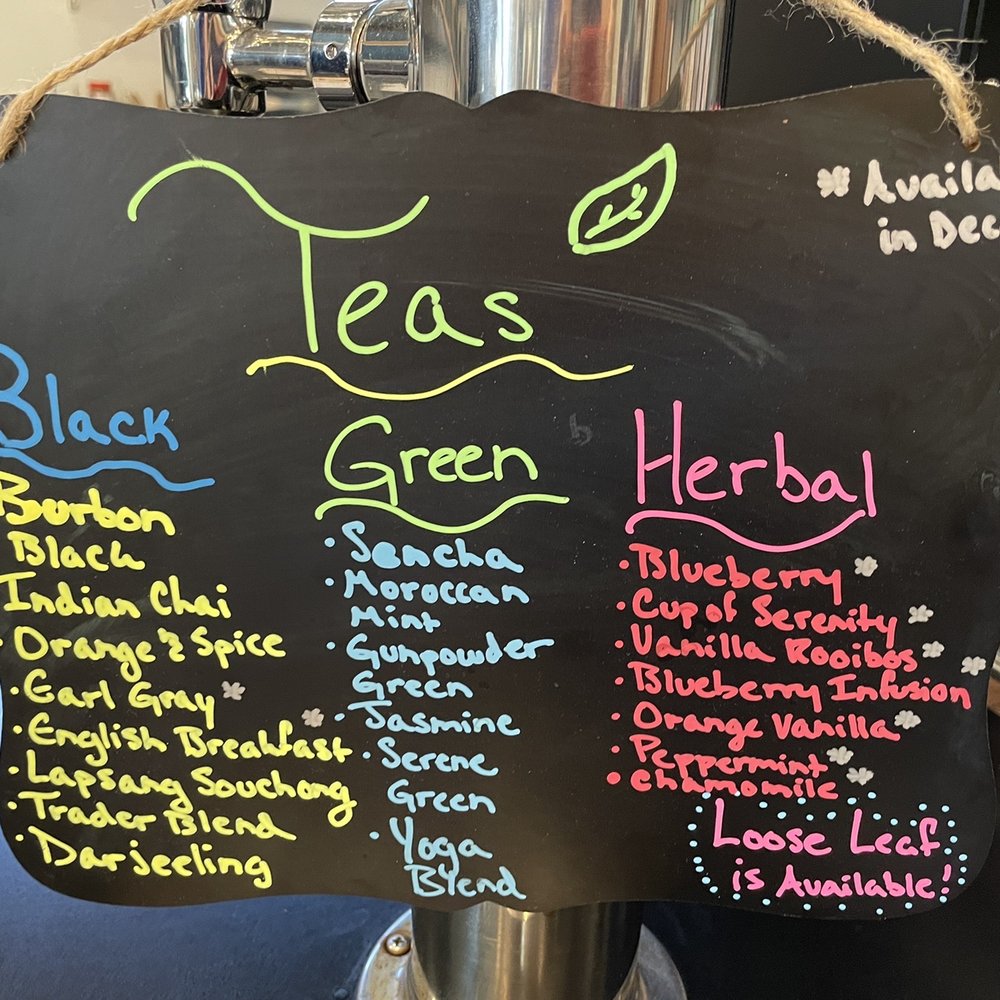 Teas
* Availa
in Dec
Black
Burbon
Black
Indian Chai
Orange & Spice
• Earl Gray *
• English Breakfast *
• Lapsang Souchong
• Trader Blend
• Darjeeling
Green
• Sencha
• Moroccan
Mint
• Gunpowder
Green
• Jasmine
• Serene
Green
• Yoga
Blend
Herbal
• Blueberry *
• Cup of Serenity *
• Vanilla Rooibos *
• Blueberry Infusion *
• Orange Vanilla *
• Peppermint *
• Chamomile *
Loose Leaf
is Available!